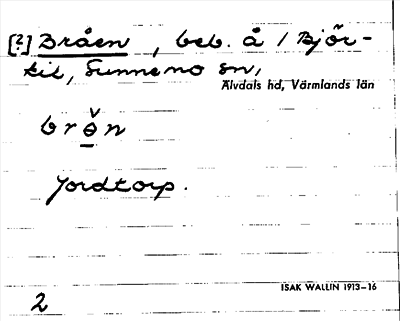 [?] Bråen, beb. å 1 Björ-
kil, Sunnemo sn,
Älvdals hd, Värmlands län
brə̠̌n
Jordtorp.
ISAK WALLIN 1913–16
2